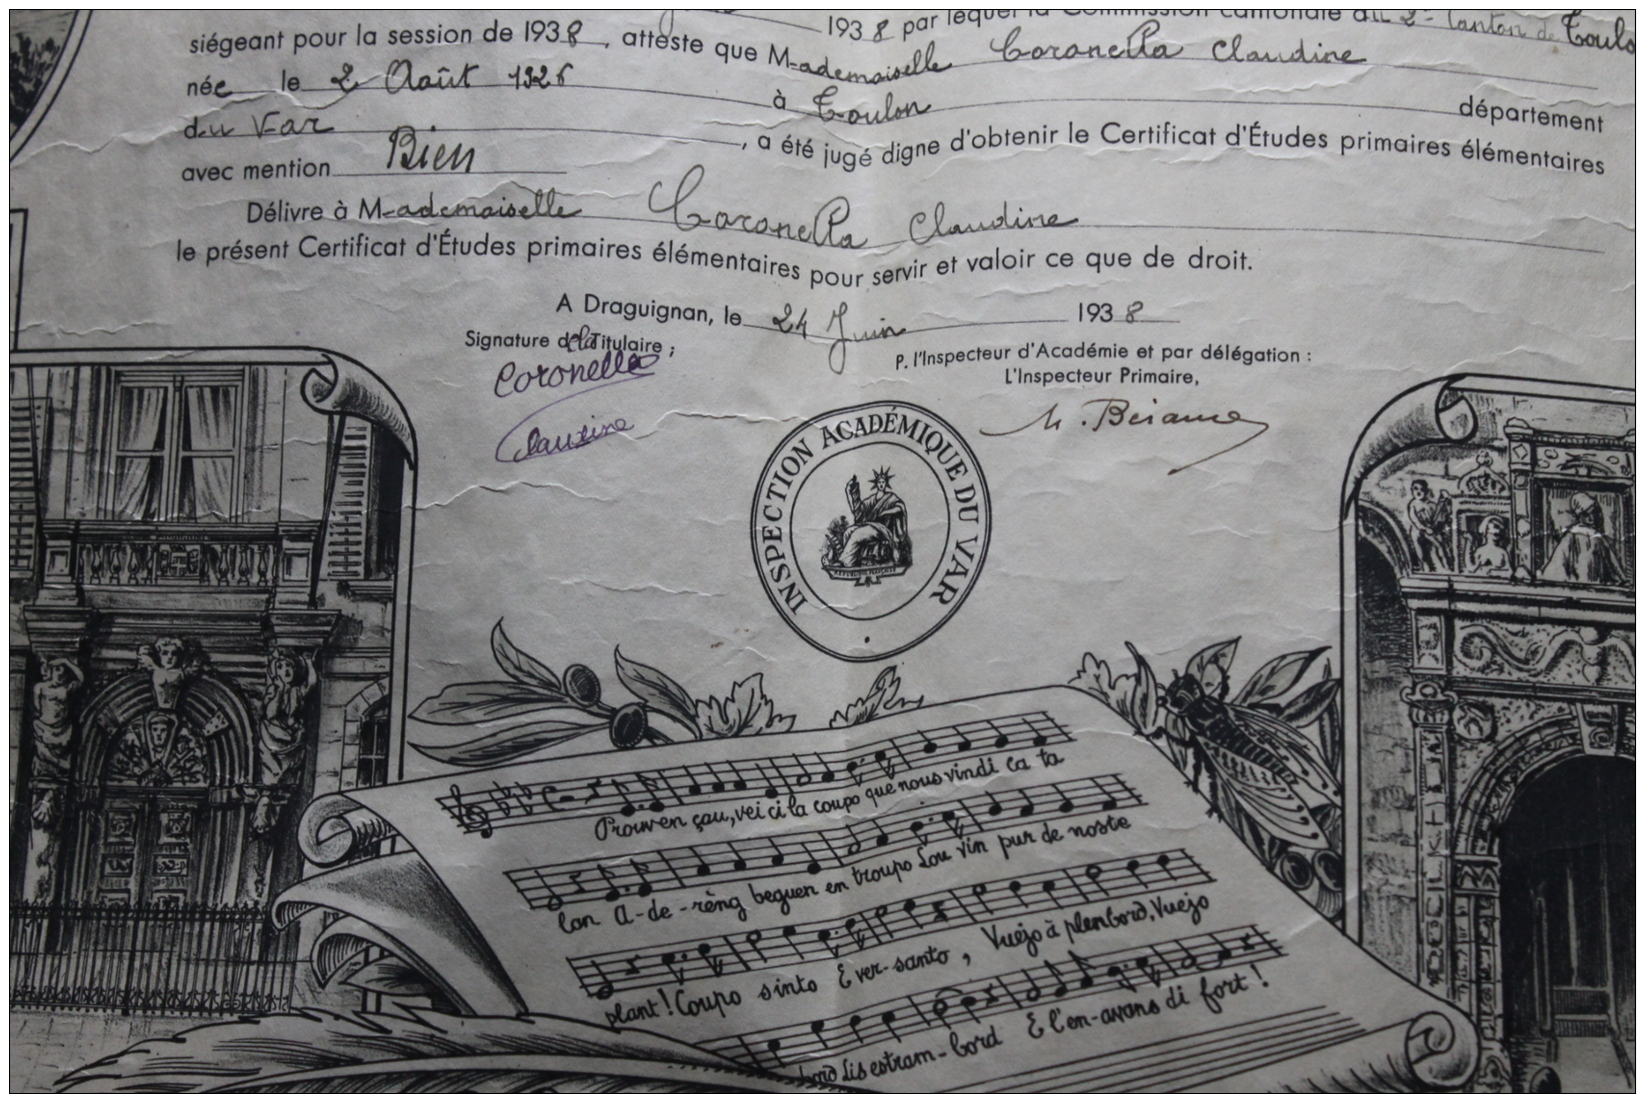 1938 par lequel la Commission cantonale du 2e Canton de Toulo
siégeant pour la session de 1938, atteste que Mademoiselle Coronella Claudine
née le 2 Août 1926 à Toulon département
du Var, a été jugé digne d'obtenir le Certificat d'Études primaires élémentaires
avec mention Bien
Délivré à Mademoiselle Coronella Claudine
le présent Certificat d'Études primaires élémentaires pour servir et valoir ce que de droit.
A Draguignan, le 24 Juin 1938
Signature de la Titulaire ;
Coronella
Claudine
P. l'Inspecteur d'Académie et par délégation :
L'Inspecteur Primaire,
INSPECTION ACADÉMIQUE DU VAR
RÉPUBLIQUE FRANÇAISE
Prouven çau, vei ci la coupo que nous vindi ca ta
lan A-de-rèng beguen en troupo Lou vin pur de noste
plant! Coupo sinto E ver-santo, Vuejo à plen bord, Vuejo
bord Lis estram-bord E l'en-avans di fort!